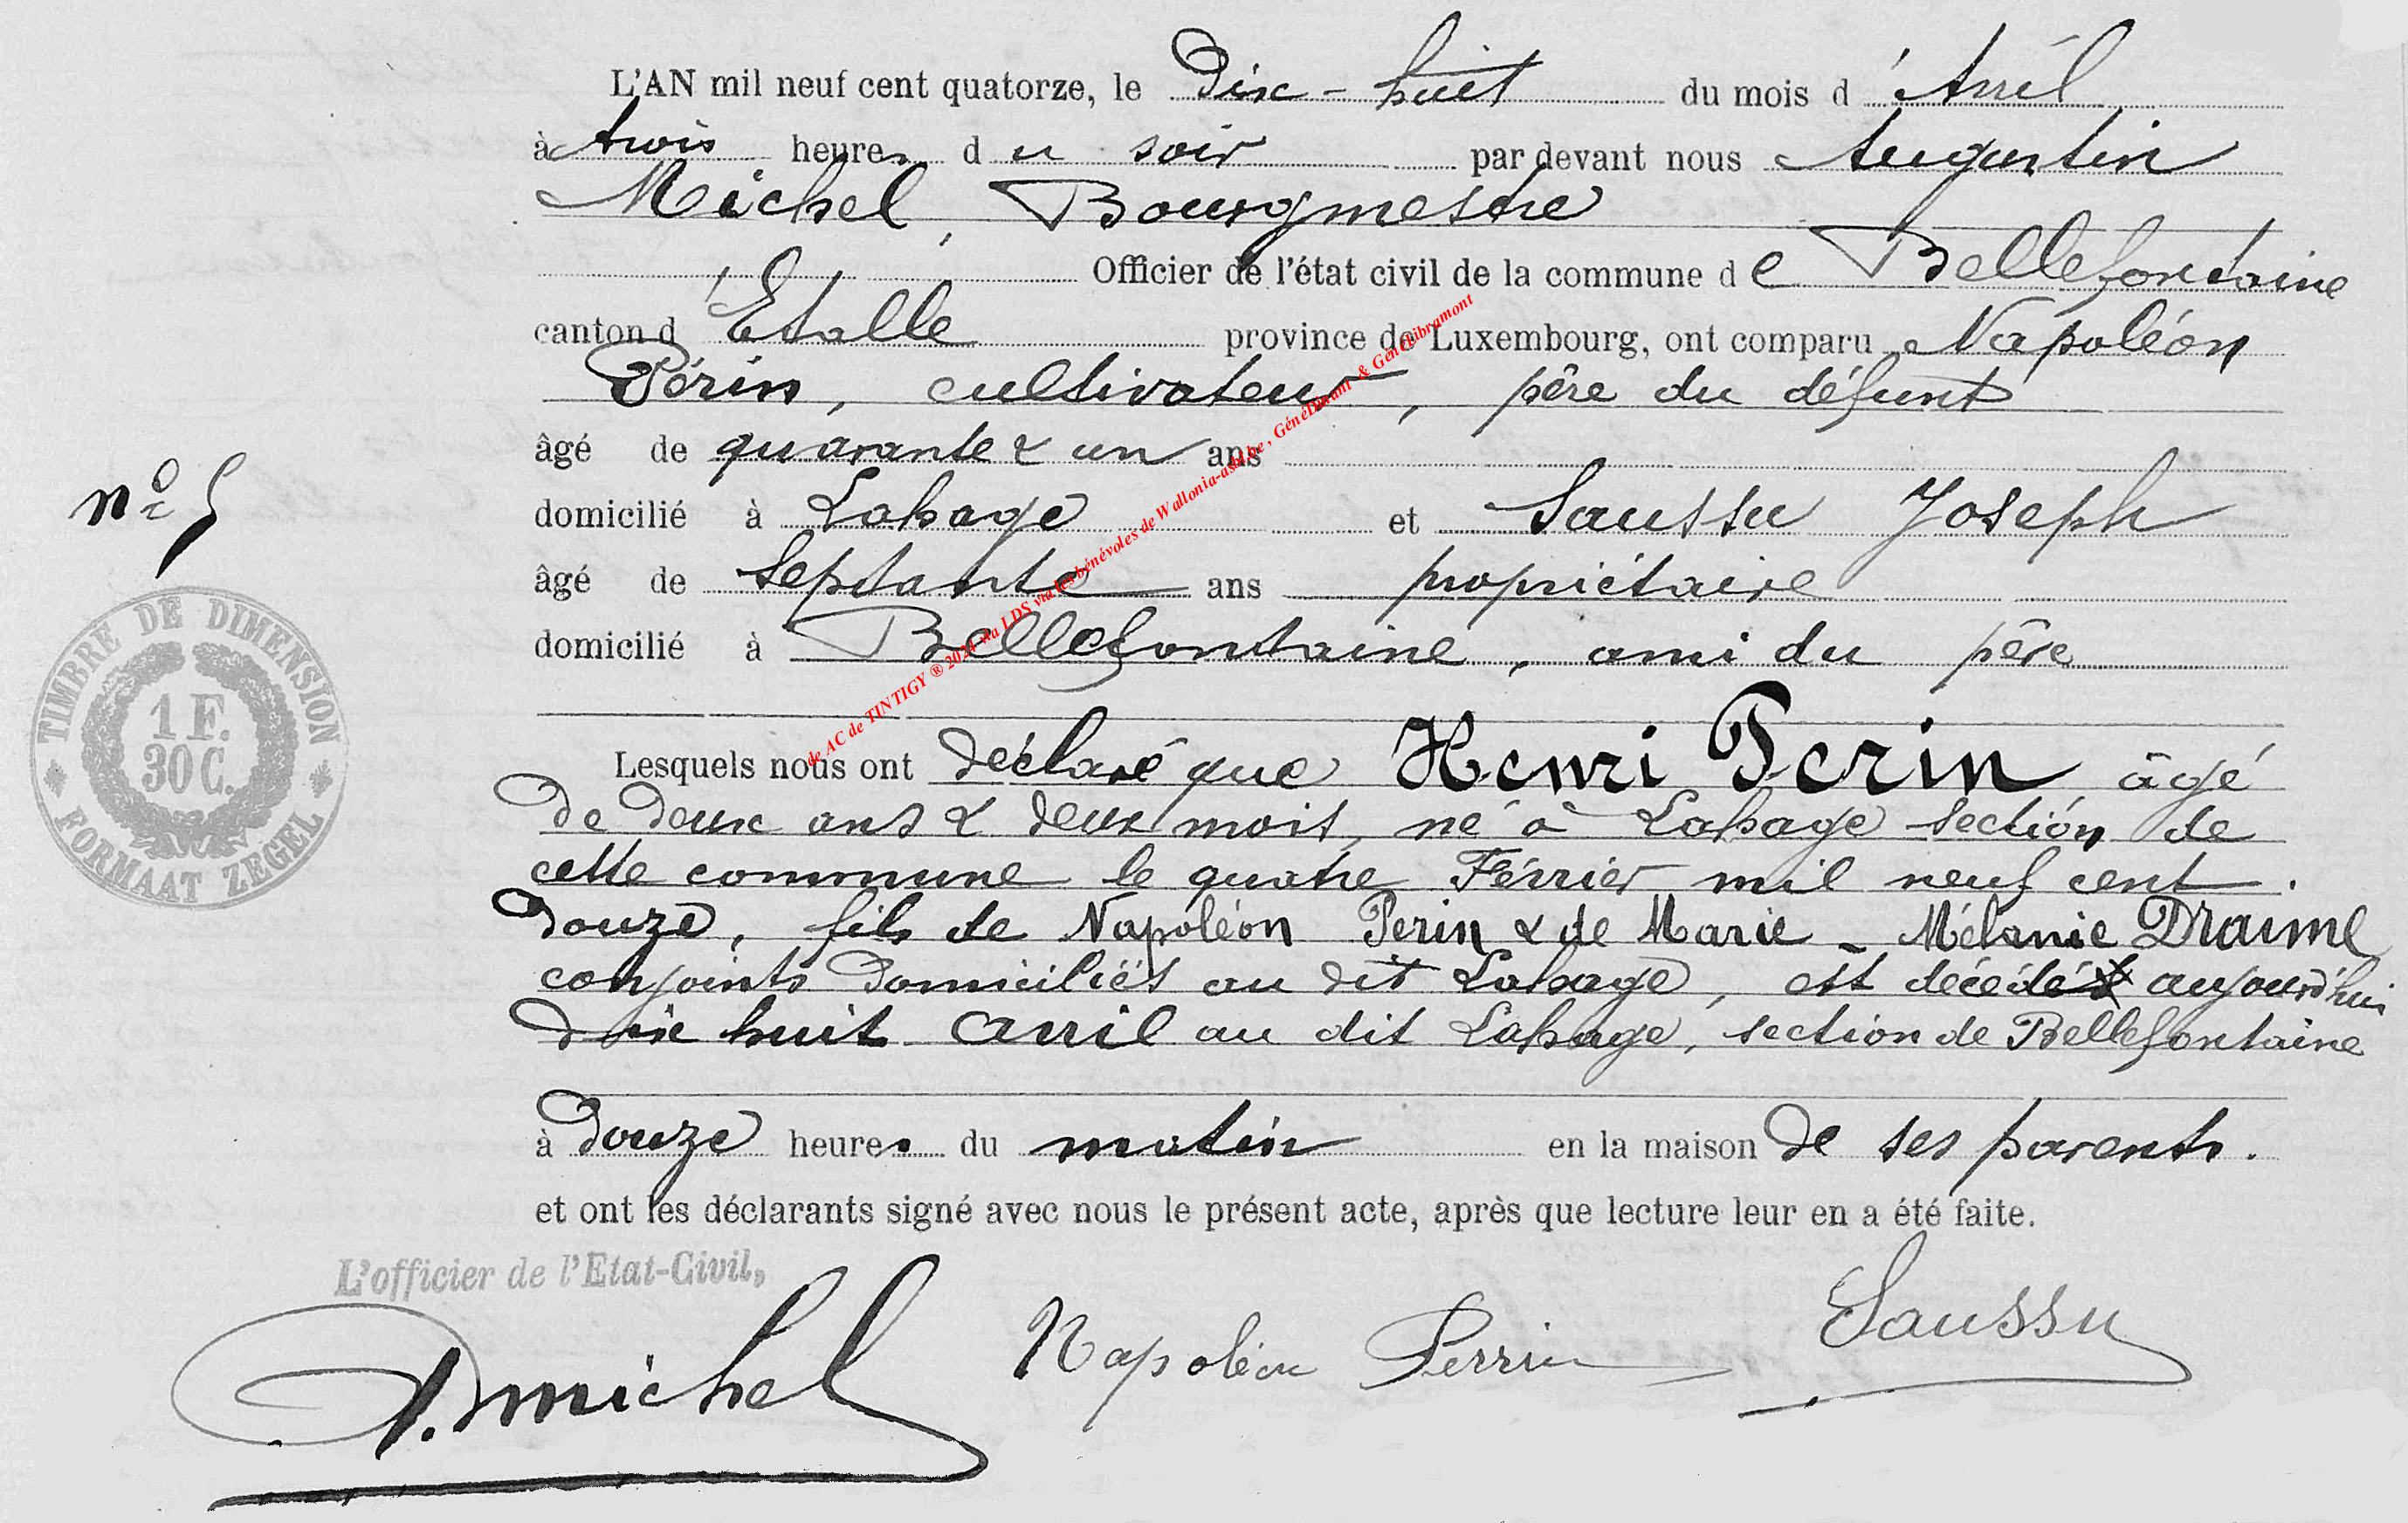 L'AN mil neuf cent quatorze, le Dix-huit du mois d'Avril
à trois heures du soir par devant nous Augustin
Michel, Bourgmestre
Officier de l'état civil de la commune de Bellefontaine
canton d'Etalle province de Luxembourg, ont comparu Napoléon
Périn, cultivateur, père du défunt
âgé de quarante & un ans
domicilié à Lahage et Saussu Joseph
âgé de septante ans propriétaire
domicilié à Bellefontaine, ami du père
nº 5
TIMBRE DE DIMENSION
1 F.
30 C.
FORMAAT ZEGEL
Lesquels nous ont déclaré que Henri Perin âgé
de deux ans & deux mois, né à Lahage section de
cette commune le quatre Février mil neuf cent
douze, fils de Napoléon Perin & de Marie-Mélanie Draime
conjoints domiciliés au dit Lahage, est décédé aujourd'hui
dix huit avril au dit Lahage, section de Bellefontaine
à douze heures du matin en la maison de ses parents.
et ont les déclarants signé avec nous le présent acte, après que lecture leur en a été faite.
L'officier de l'Etat-Civil,
A. Michel Napoléon Perrin Saussu
de AC de TINTIGY ® 2024 via LDS via les bénévoles de Wallonia-asbl.be, GénéDinant & GénéLibramont